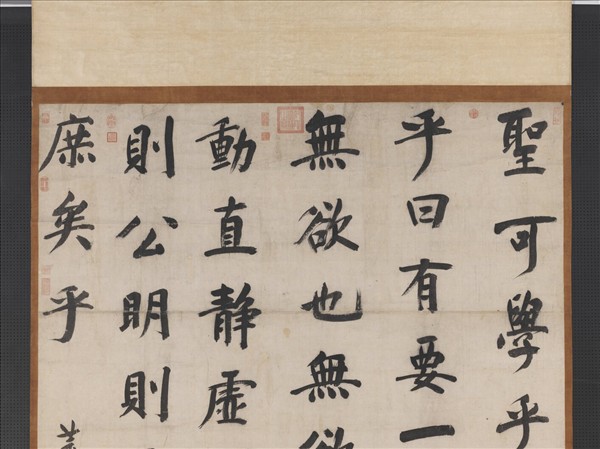 聖可學乎
乎曰有要一
無欲也無欲
動直靜虛
則公明則
庶矣乎